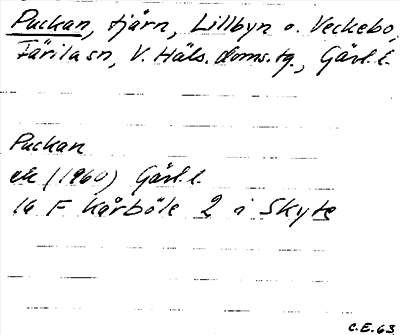 Puckan, tjärn, Lillbyn o. Veckebo,
Färila sn, V. Häls. doms.tg., Gävl. l.
Puckan
ek (1960) Gävl. l.
16 F Kårböle 2 i Skyte
C.E. 63